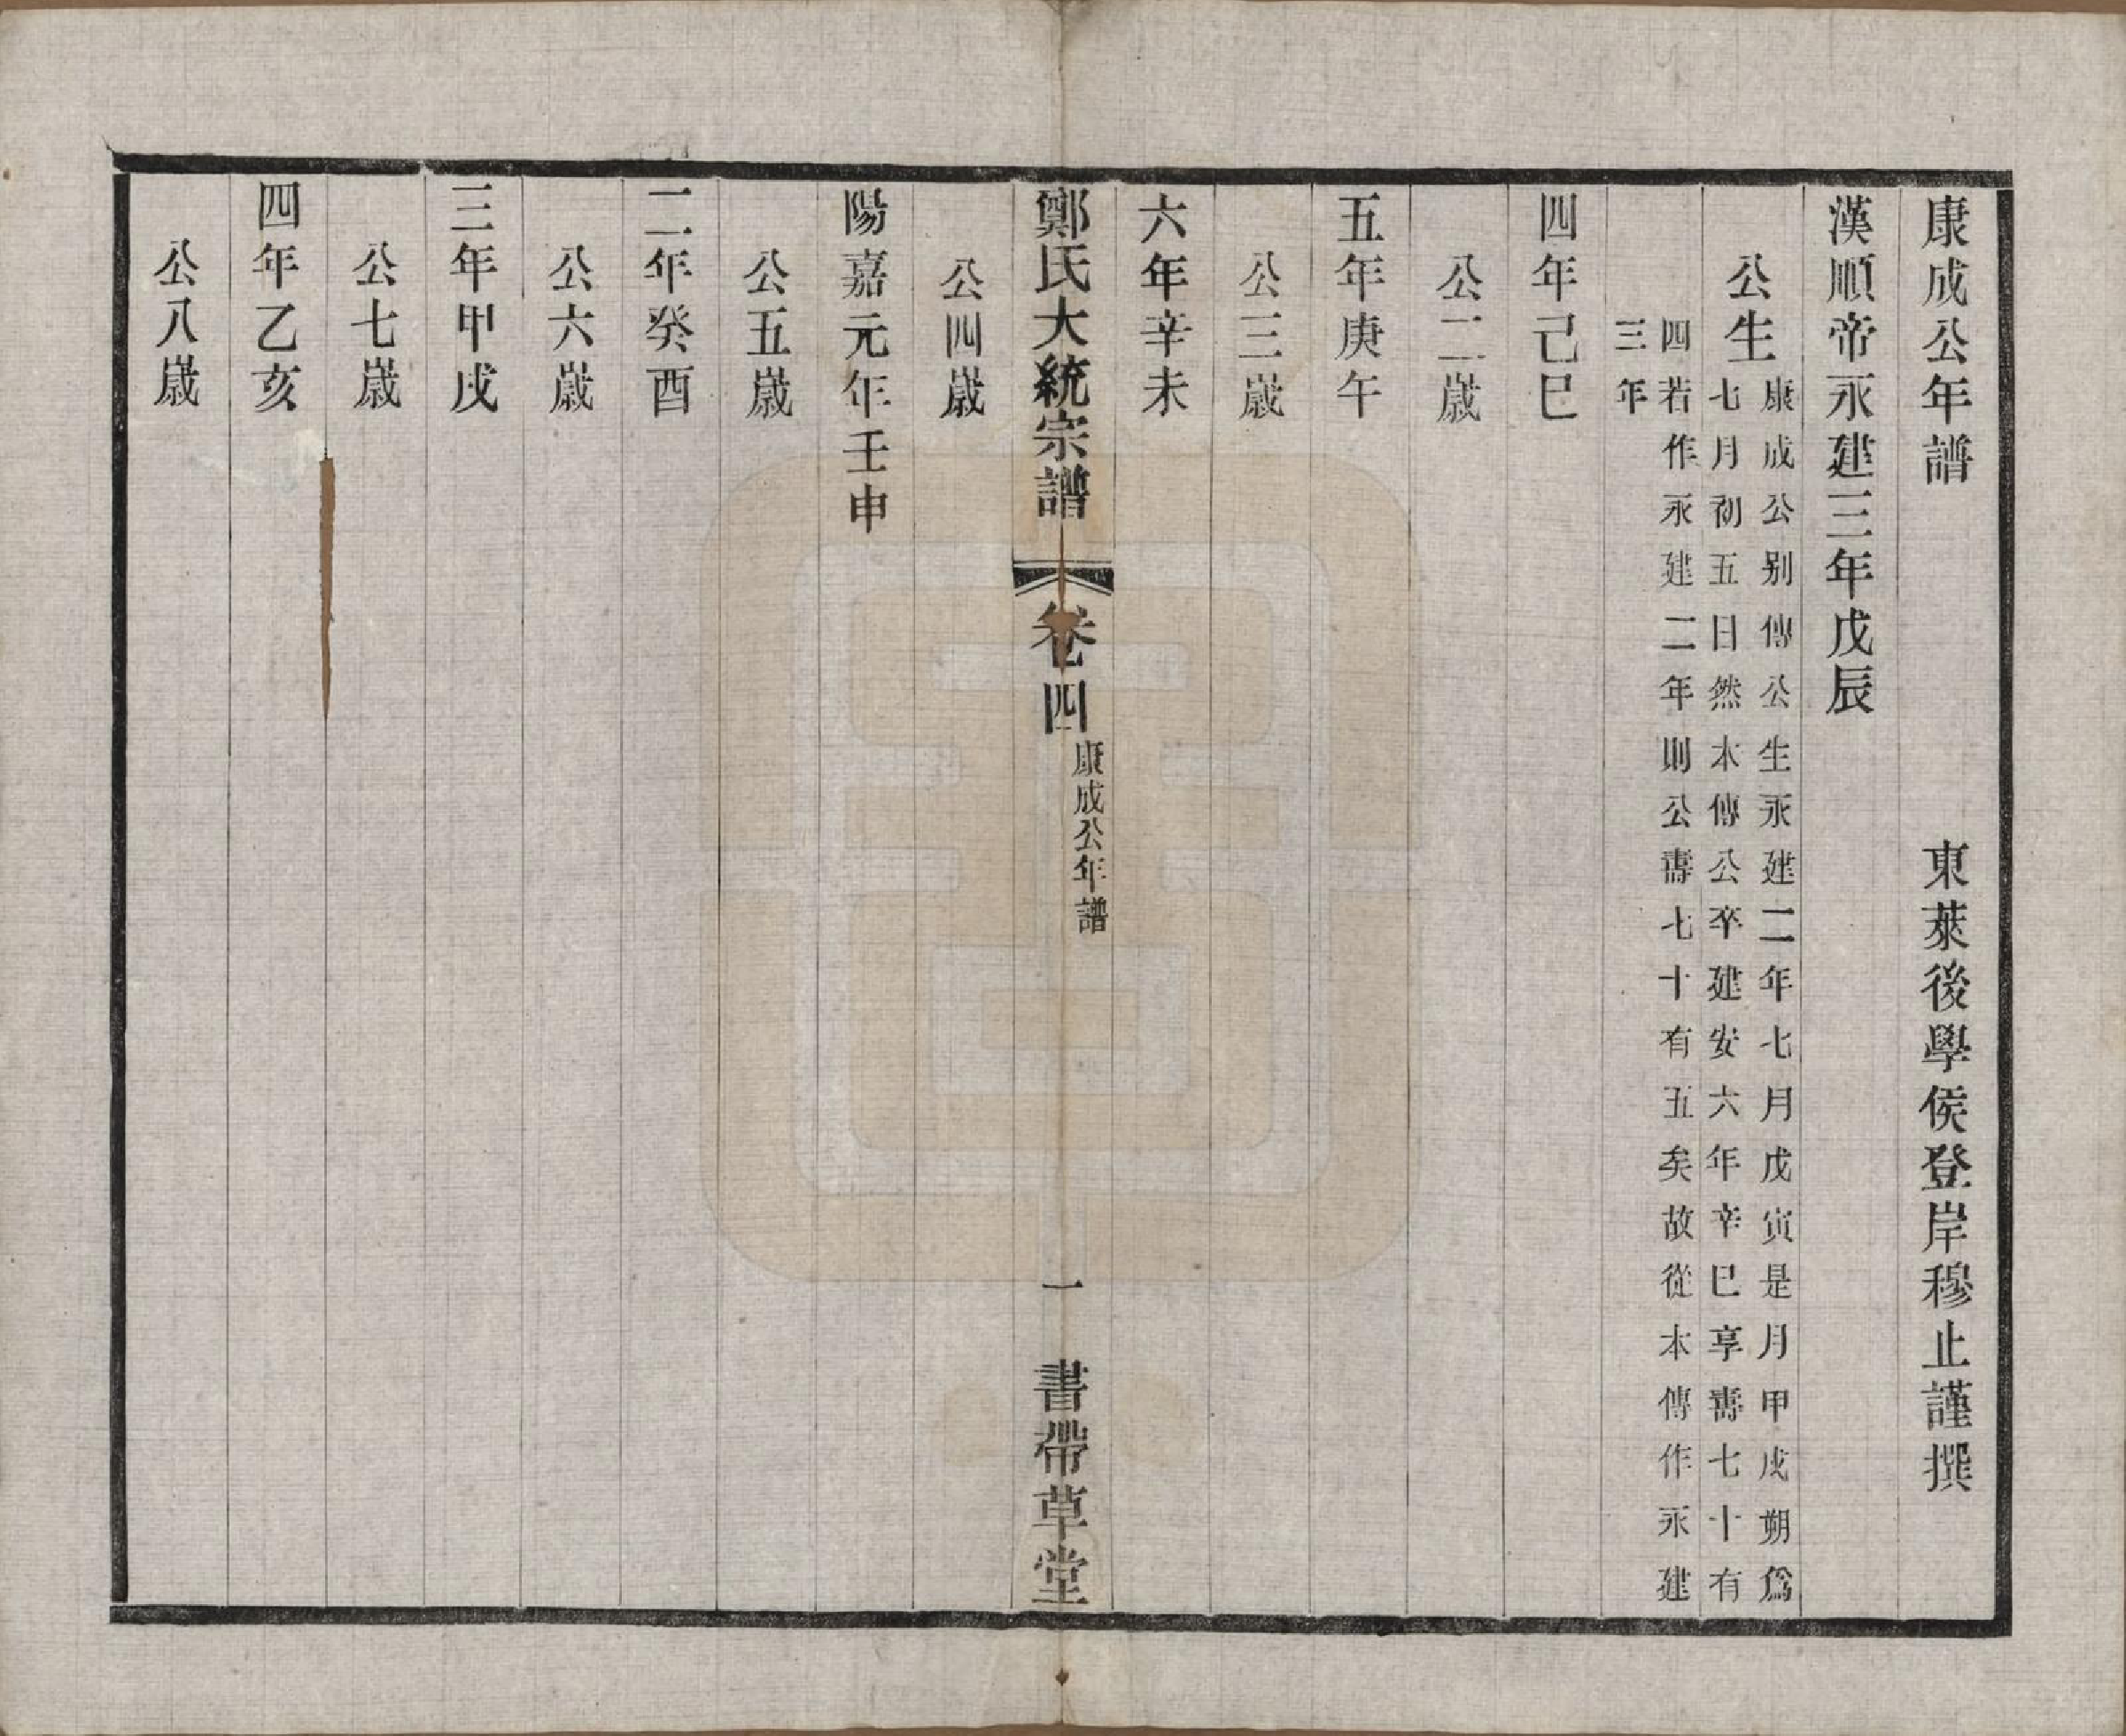 康成公年譜　東萊後學侯登岸穆止謹撰
漢順帝永建三年戊辰
公生
康成公別傳公生永建二年七月戊寅是月甲戌朔爲
七月初五日然本傳公卒建安六年辛巳享壽七十有
四若作永建二年則公壽七十有五矣故從本傳作永建
三年
四年己巳
公二歲
五年庚午
公三歲
六年辛未
鄭氏大統宗譜　卷四　康成公年譜　一　書帶草堂
公四歲
陽嘉元年壬申
公五歲
二年癸酉
公六歲
三年甲戌
公七歲
四年乙亥
公八歲